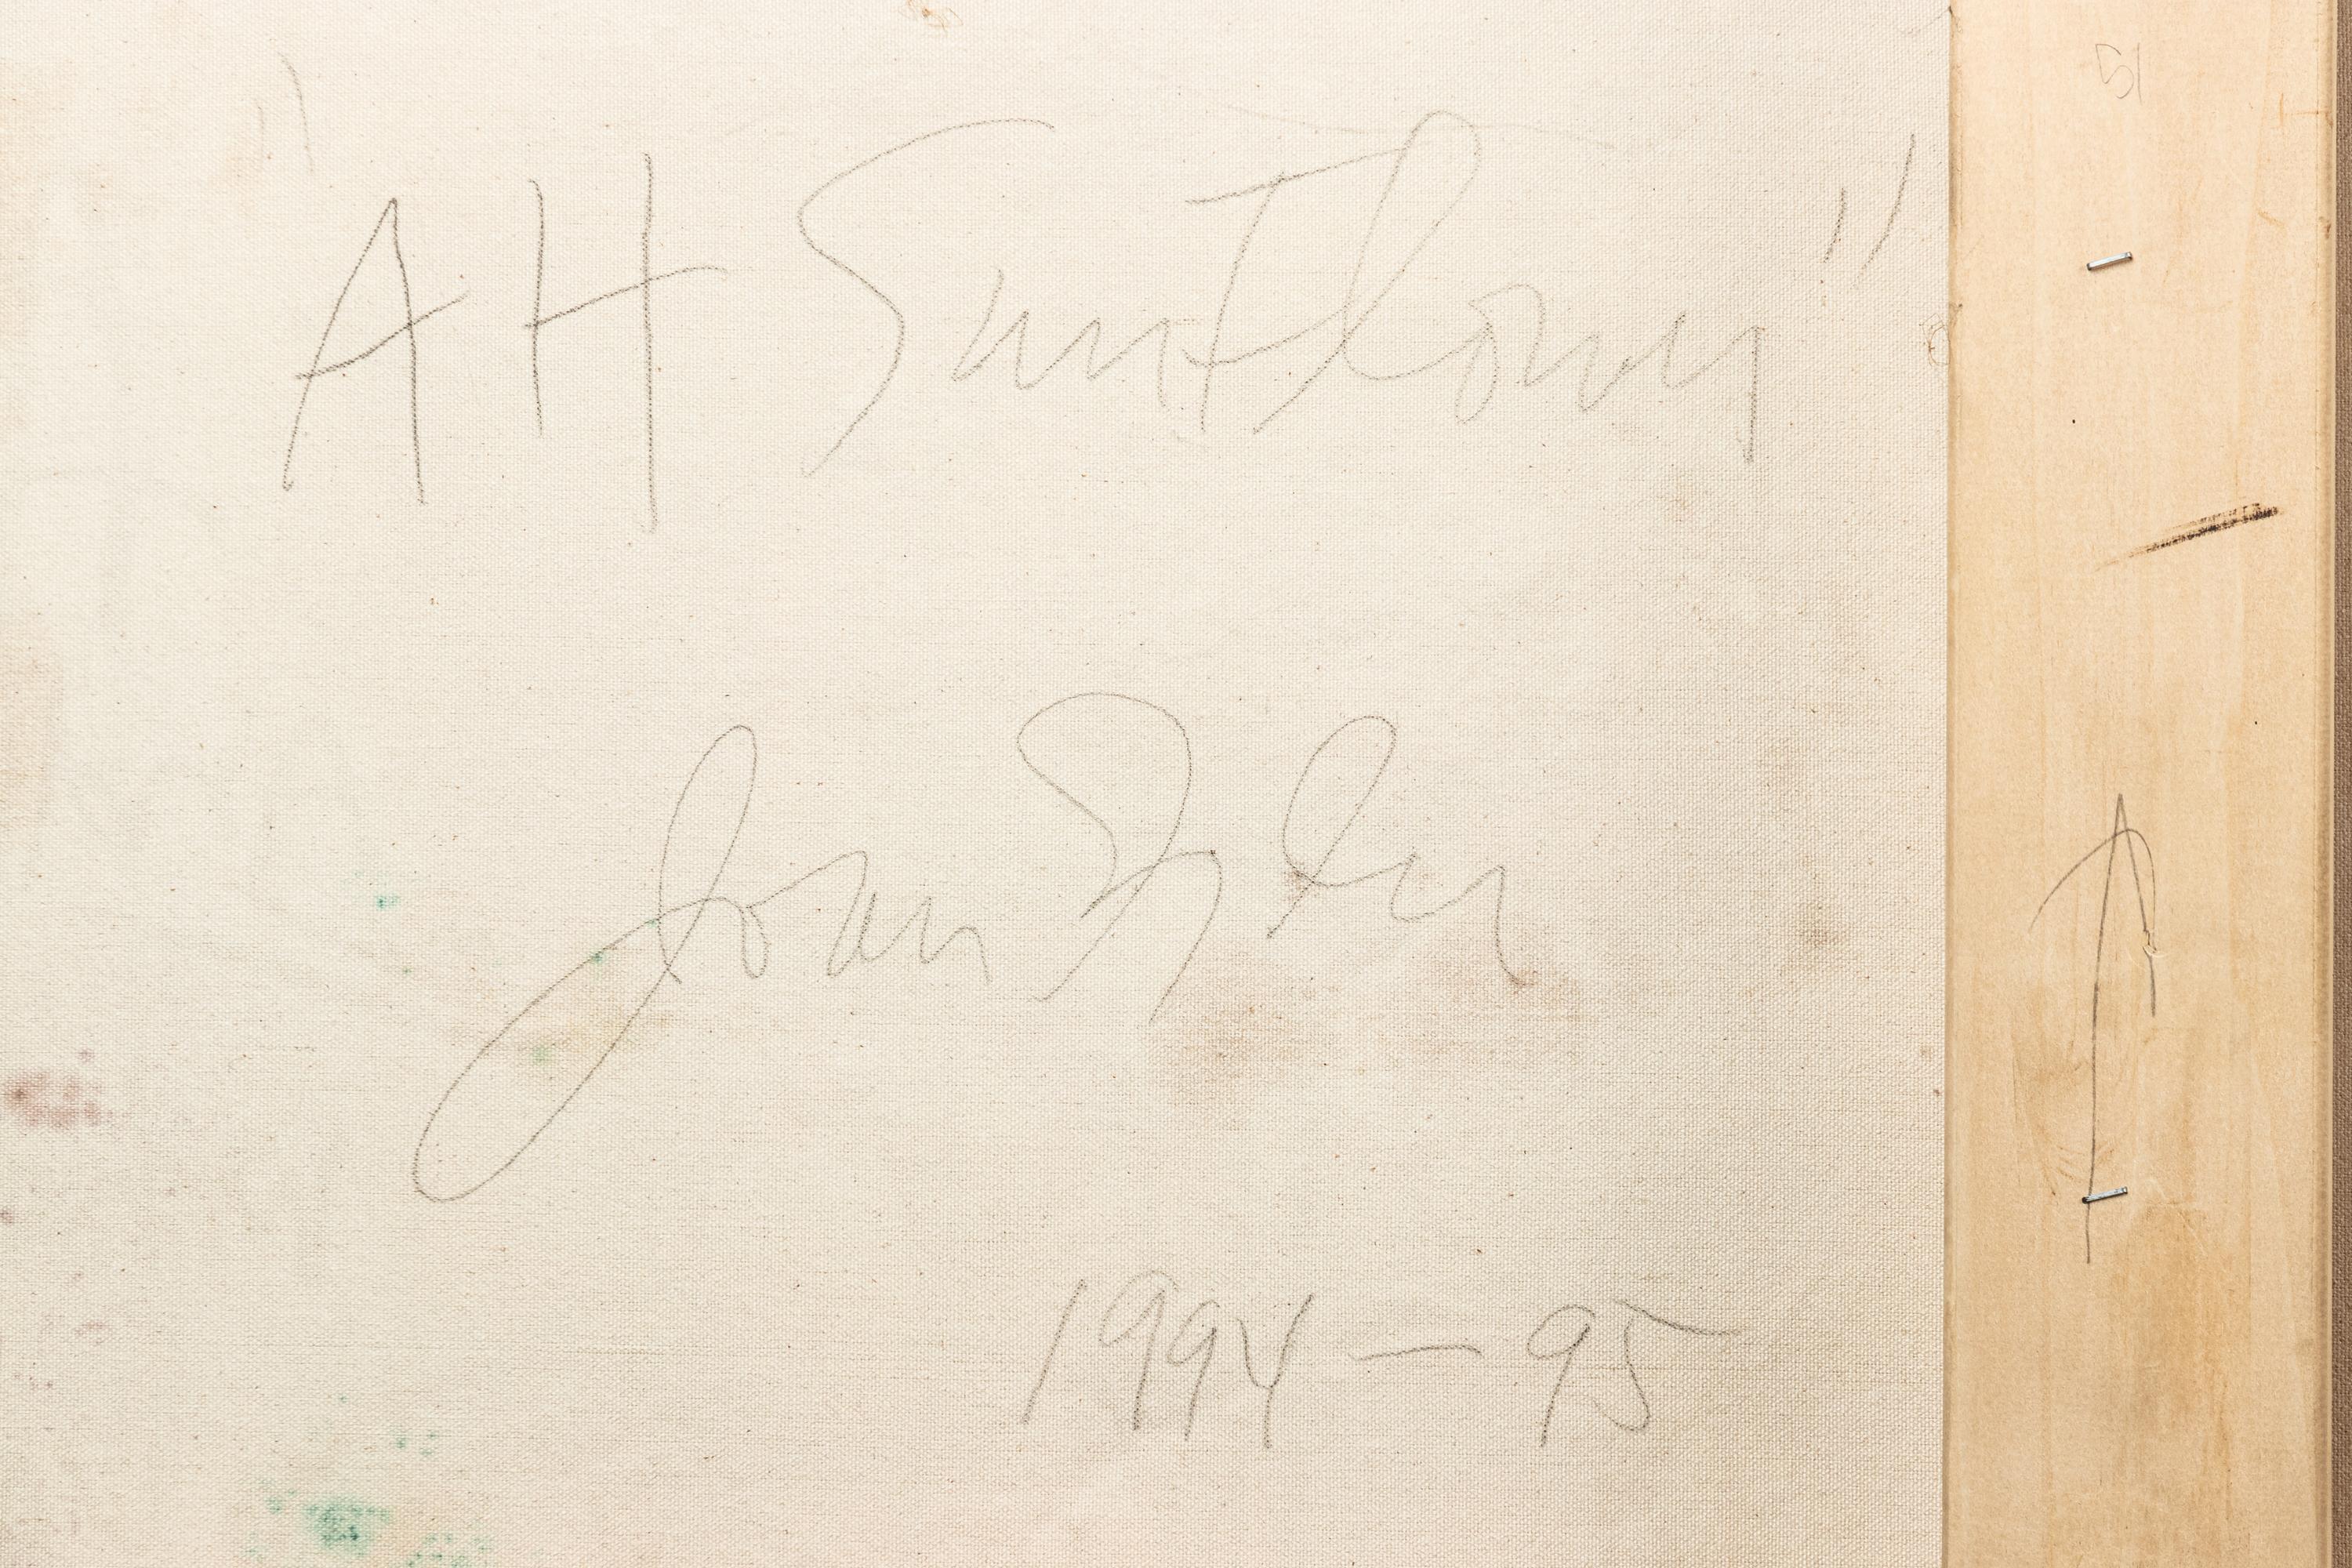 "AH Sunflower"
Joan Snyder
1994 - 95
51